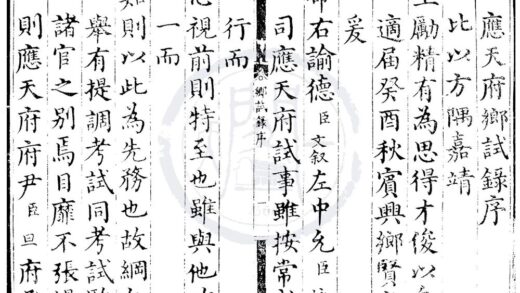 應天府鄉試錄序
比以方隅嘉靖
上勵精有為思得才俊以
適屆癸酉秋賓興鄉賢
爰
右諭德臣文叙左中允臣
司應天府試事雖按常
鄉試錄序 一
行而
視前則特至也雖與他
一而
則以此為先務也故綱
舉有提調考試同考試
諸官之別焉目靡不張
則應天府府尹臣旦府